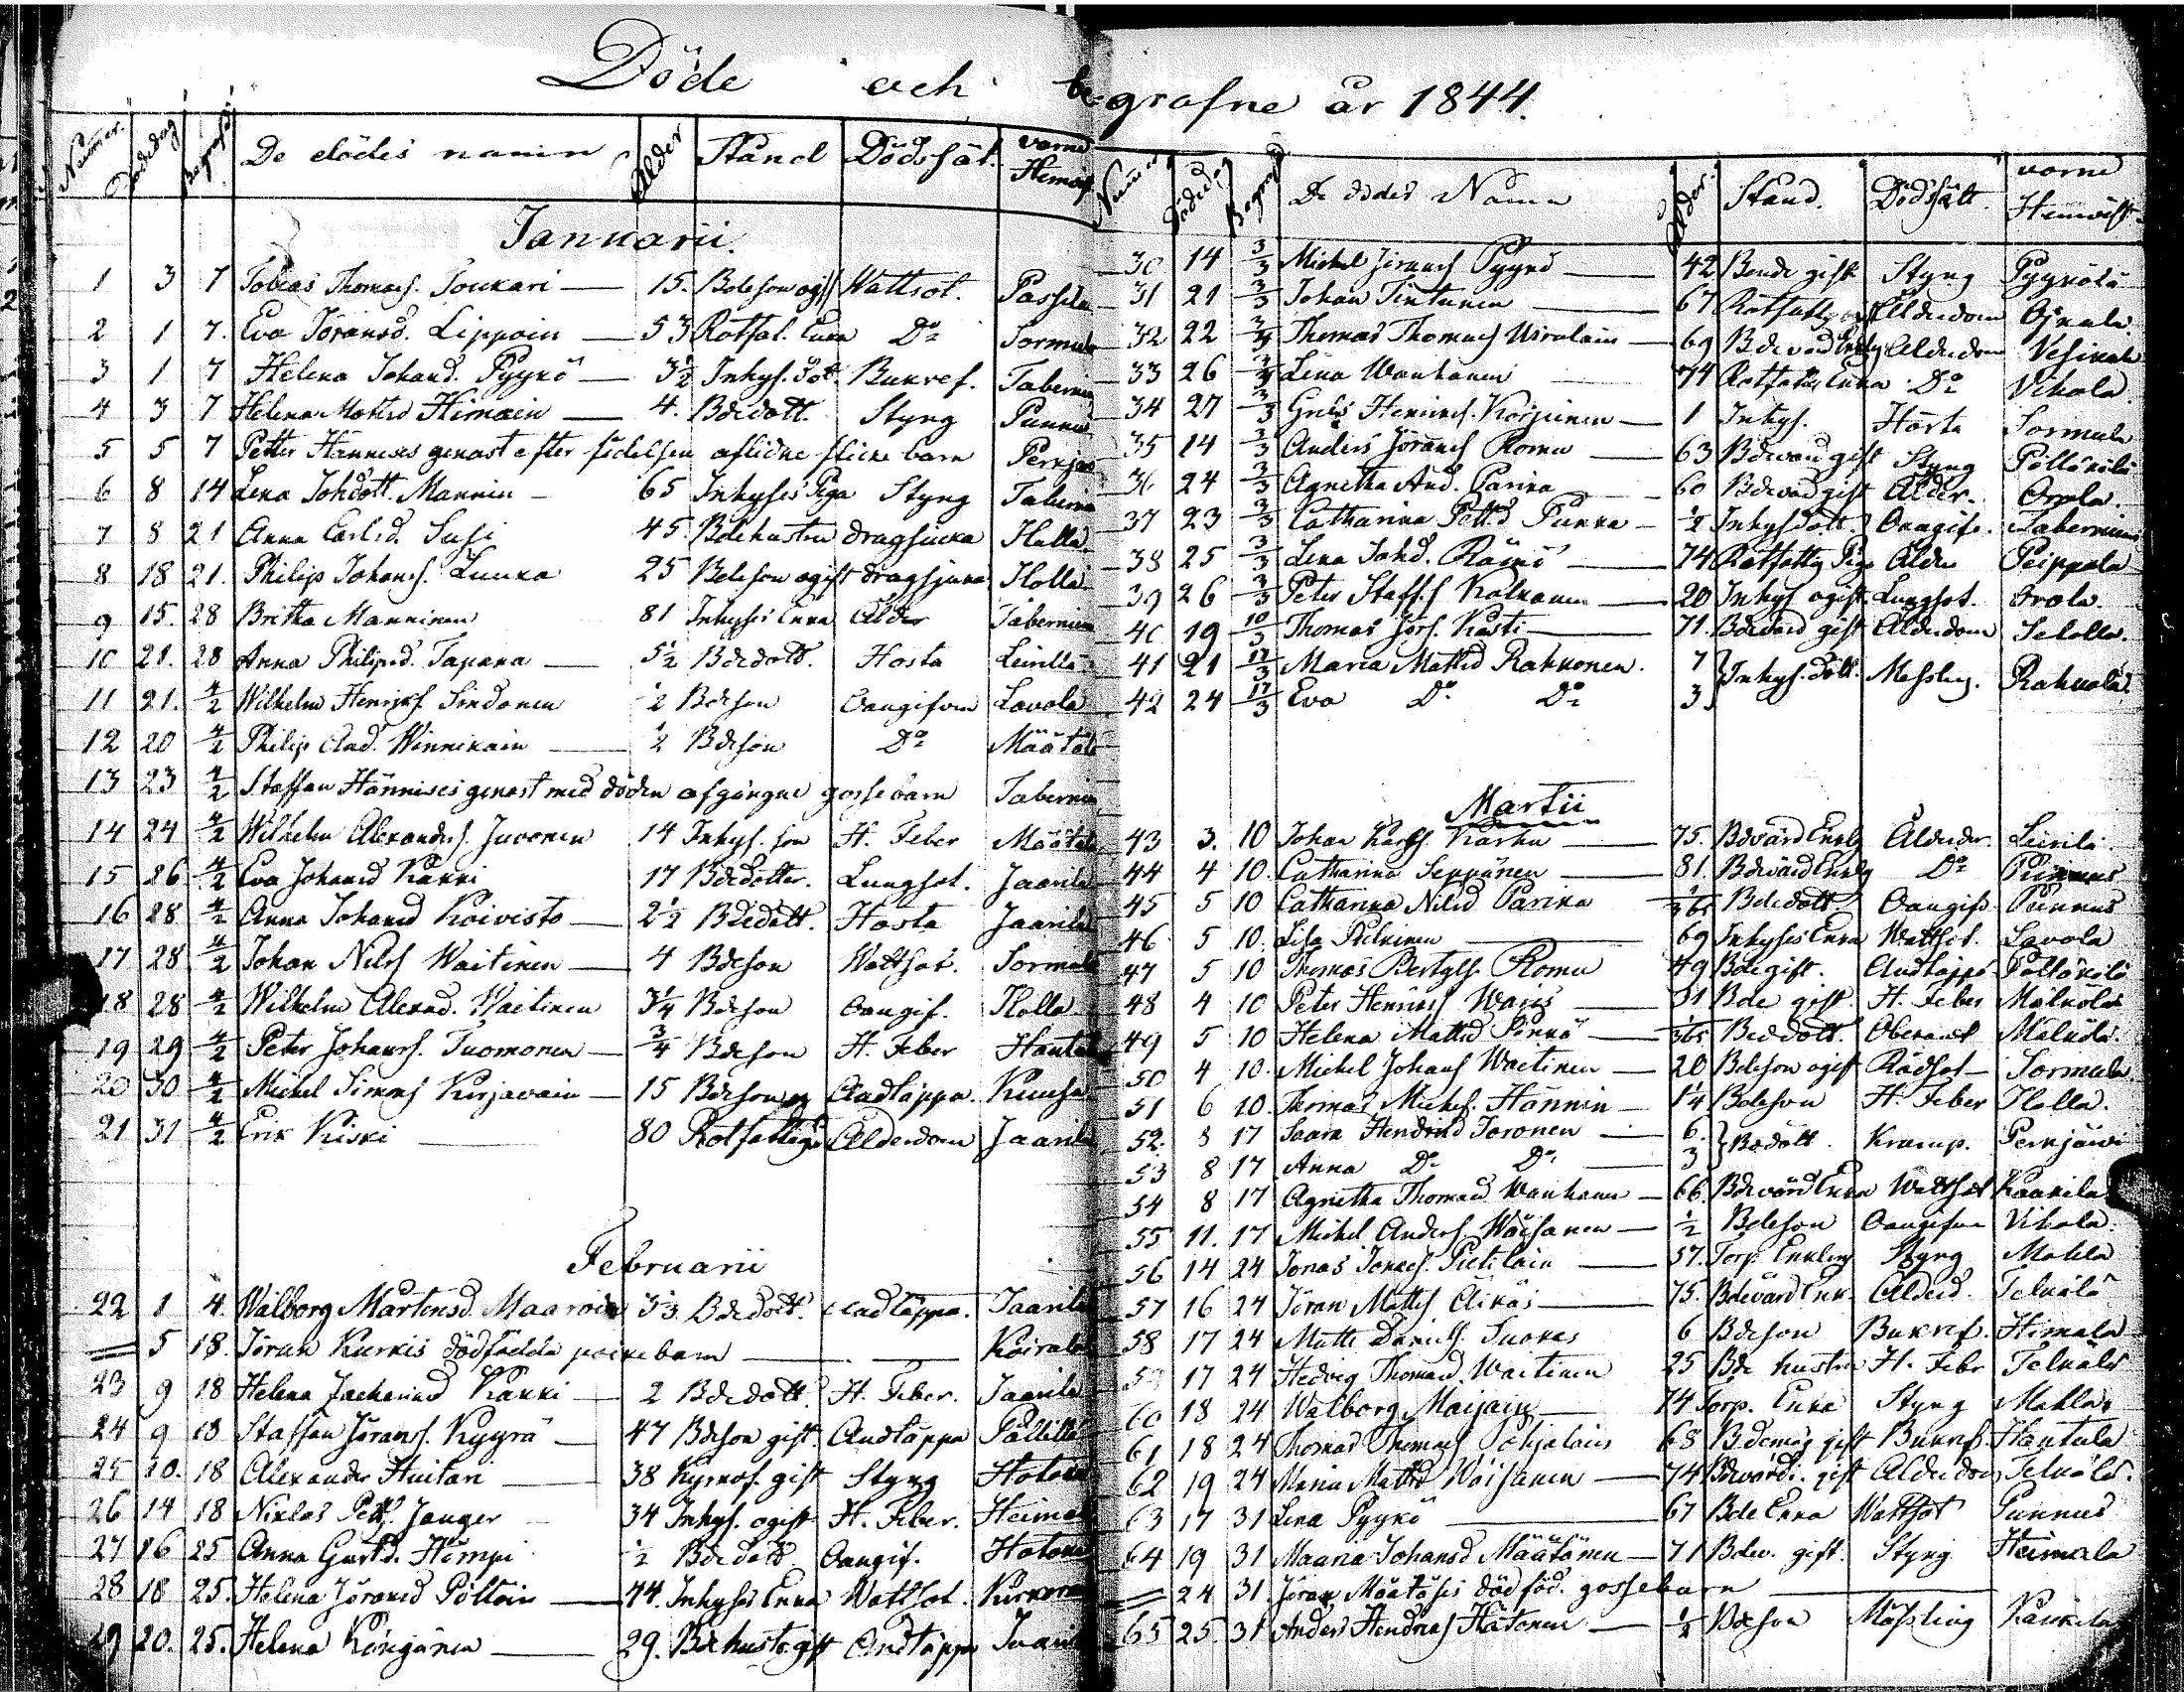 Döde och begrafne år 1844.
Nummer. Dödedag Begrafn. De dödes namn Ålder Stånd Dödssät. varne Hemvist
Januarii.
1 3 7 Tobias Thomass. Toukari — 15. Bdeson ogift Wattsot. Passila
2 1 7. Eva Göransd. Lippoin — 53 Rotfat. Enka Do Sormula
3 1 7 Helena Johansd. Pyykö — 3½ Inhys. dot. Bukref. Taberni
4 3 7 Helena Mattsd Himain — 4. Bdedott. Styng Punnus
5 5 7 Petter Hännises genast efter födelsen aflidne flicke barn Perkjär
6 8 14 Lena Johdott. Mannin — 65 Inhyses Piga Styng Taberni
7 8 21 Anna Carlsd. Susi 45 Bdehustru dragsiuka Holla
8 18 21. Philip Johanss. Luuka 25 Bdeson ogift dragsjuka Holla
9 15. 28 Britha Manninen 81 Inhyses Enka Ålder Tabernin
10 21. 28 Anna Philipsd. Tapana — 5½ Bdedott. Hosta Leinilä
11 21. 4/2 Wilhelm Henrikss Sindonen ½ Bdeson Oangifven Lavola
12 20 4/2 Philip And. Winnikain — ½ Bdeson Do Määtäl
13 23 4/2 Staffan Hännises genast med döden afgångne gossebarn Tabernin
14 24 4/2 Wilhelm Alexanders. Juvonen 14 Inhys. son H. Feber Määtäl
15 26 4/2 Eva Johansd Kakki 17 Bdedotter. Lungsot. Jaarila
16 28 4/2 Anna Johansd Koivisto — 2½ Bdedott. Hosta Jaarila
17 28 4/2 Johan Nilss Waitinen — 4 Bdeson Wattsot. Sormula
18 28 4/2 Wilhelm Alexand. Waitinen 3¼ Bdeson Oangif. Holla
19 29 4/2 Peter Johanss. Tuomonen — ¾ Bdeson H. Feber Hantul
20 30 4/2 Michel Simons Kirjavain — 15 Bdeson og Andtäppa. Kuusa
21 31 4/2 Erik Kiski — 80 Rotfattig Ålderdom Jaarila
Februarii
22 1 4. Walborg Mårtensd. Maaroin 5⅓ Bdedott. Andtäppa. Jaarila
= 5 18. Jöran Kurkis dödfödda poike barn — Koirala
23 9 18 Helena Zachariasd Kakki — 2 Bdedott. H. Feber. Jaarila
24 9 18 Staffan Jöranss. Kyyrä — 47 Bdeson gift. Andtäppa Pällilä
25 10. 18 Alexander Huitari — 38 Kyrkof. gift Styng Hotoka
26 14 18 Niklas Pett. Jauger — 34 Inhys. ogift H. Feber. Heimal
27 16 25 Anna Gustd. Hämpi ½ Bdedott. Oangif. Hotoka
28 18 25. Helena Jöransd Pöltöin — 44. Inhyses Enka Wattsot.
29 20. 25. Helena Köngönen — 29. Bdehustr. gift Andtäppa Jaarila
Numer Dödedag Begrafn De dödes Namn Ålder. Stånd. Dödssätt. varne Hemvist
30 14 3/3 Michel Jöranss Pyykö — 42 Bonde gift Styng Pyykölä
31 21 3/3 Johan Tintunen — 67 Rotfattig Ålderdom Ojnala
32 22 3/3 Thomas Thomass Usvalain — 69 Bdevärd Enkling Ålderdom Vesikala
33 26 3/3 Lena Wanhanen — 74 Rotfattig Enka Do Vihola.
34 27 3/3 Henrics. Korpinen — 1 Inhys. Hosta Sormula
35 14 3/3 Anders Jöranss Romu — 63 Bdevärd gift Styng Pöllökilä
36 24 3/3 Agnetha And. Parikka — 60 Bdevärd gift Ålder. Orola.
37 23 3/3 Catharina Pettd Pukka — ½ Inhysdott. Oangif. Tabernina
38 25 3/3 Lena Johd. Rämö — 74 Rotfattig Piga Ålder Peippola
39 26 3/3 Peter Staffss Kalkanen — 20 Inhys ogift Lungsot. Orola.
40 19 10/3 Thomas Jörs. Kosti — 71. Bdevärd gift Ålderdom Telolla.
41 21 17/3 Maria Mattsd Rahkonen. 7 } Inhys. dött. Messling. Rahkola.
42 24 17/3 Eva Do Do 3
Martii
43 3. 10 Johan Karls. Karhu — 75. Bdvärd Enkl. Ålderdr. Leinilä.
44 4 10. Catharina Seppänen — 81. Bdevärd Enkl. Do Punnus
45 5 10 Catharina Nilsd Parikka 1/365 Bdedott. Oangif. Punnus
46 5 10. Lisa Pulkinen — 69 Inhyses Enka Wattsot. Lavola
47 5 10 Thomas Bertyls. Romu 49 Bde gift. Andtäppa Pöllökilä
48 4 10 Peter Henrics Wares — 31 Bde gift. H. Feber Mälkölä
49 5 10 Helena Mattsd Pirkkö — 1/365 Bdedott. Obekant Mälkölä.
50 4 10. Michel Johans Waitinen — 20 Bdeson ogift Rödsot — Sormula
51 6 10. Thomas Michels. Hännin — 1¼ Bdeson H. Feber Holla.
52. 8 17 Saara Hendrsd Toronen — 6. } Bdedött. Kramp. Perkjärvi
53 8 17 Anna Do Do — 3
54 8 17 Agnetha Thomasd Wanhanen — 66. Bdevärd Enka Wattsot Kaukila
55 11. 17 Michel Anders Wäisänen — ½ Bdeson Oangifven Vihola.
56 14 24 Jonas Jonass. Pietiläin — 57. Torp. Enkling Styng Mahla
57 16 24 Jöran Matts Äikäs — 75. Bdevärd Enk. Ålderd. Telkälä
58 17 24 Matts Daniels. Tuokas 6 Bdeson Bukref. Himala
59 17 24 Hedvig Thomasd. Waitinen 25 Bde hustru H. Febr Telkälä
60 18 24 Walborg Maijain — 74 Torp. Enka Styng Mahla
61 18 24 Thomas Thomass Pohjalain 68 Bdemåg gift Bukref. Hantula
62 19 24 Maria Mattsd Wäisänen — 74 Bdevärdi. gift Ålderdom Telkälä.
63 17 31 Lena Pyykö — 67 Bde Enka Wattsot Punnus
64 19 31 Maaria Johansd Määtänen — 71 Bdev. gift. Styng Heimala
= 24 31. Jöran Määtäses död föd. gossebarn —
65 25. 31 Anders Hendrics Hätönen — ½ Bdeson Mässling Kaukila